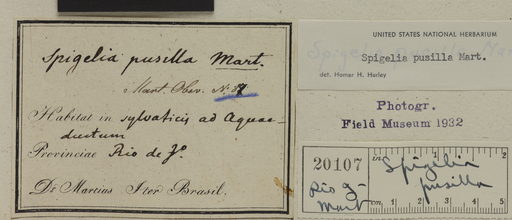 Spigelia pusilla Mart.
Mart. Obs. N.
Habitat in sylvaticis ad Aquae-
ductum
Provinciae Rio de J.º
Dr Martius Iter Brasil.
UNITED STATES NATIONAL HERBARIUM
Spigelia pusilla Mart.
det. Homer H. Hurley
Photogr.
Field Museum 1932
20107
Rio J-
Mart
in
Spigelia
pusilla
1 2 5